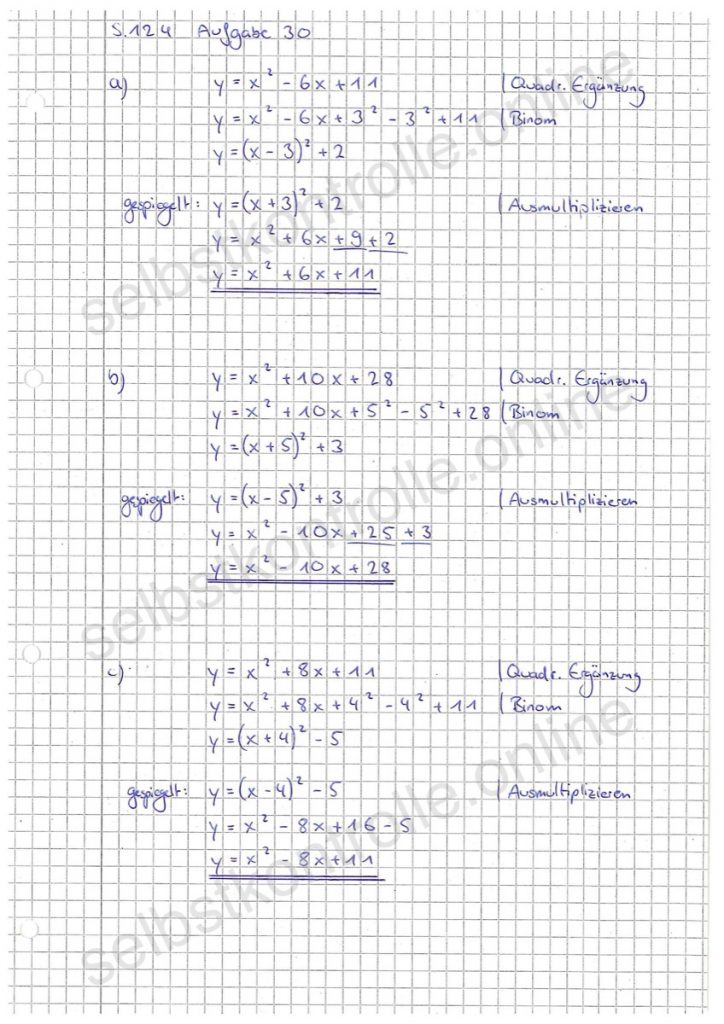 S.124 Aufgabe 30
a) y = x² - 6x + 11 | Quadr. Ergänzung
y = x² - 6x + 3² - 3² + 11 | Binom
y = (x - 3)² + 2
gespiegelt: y = (x + 3)² + 2 | Ausmultiplizieren
y = x² + 6x + 9 + 2
y = x² + 6x + 11
b) y = x² + 10x + 28 | Quadr. Ergänzung
y = x² + 10x + 5² - 5² + 28 | Binom
y = (x + 5)² + 3
gespiegelt: y = (x - 5)² + 3 | Ausmultiplizieren
y = x² - 10x + 25 + 3
y = x² - 10x + 28
c) y = x² + 8x + 11 | Quadr. Ergänzung
y = x² + 8x + 4² - 4² + 11 | Binom
y = (x + 4)² - 5
gespiegelt: y = (x - 4)² - 5 | Ausmultiplizieren
y = x² - 8x + 16 - 5
y = x² - 8x + 11
selbstkontrolle.online
selbstkontrolle.online
selbstkontrolle.online